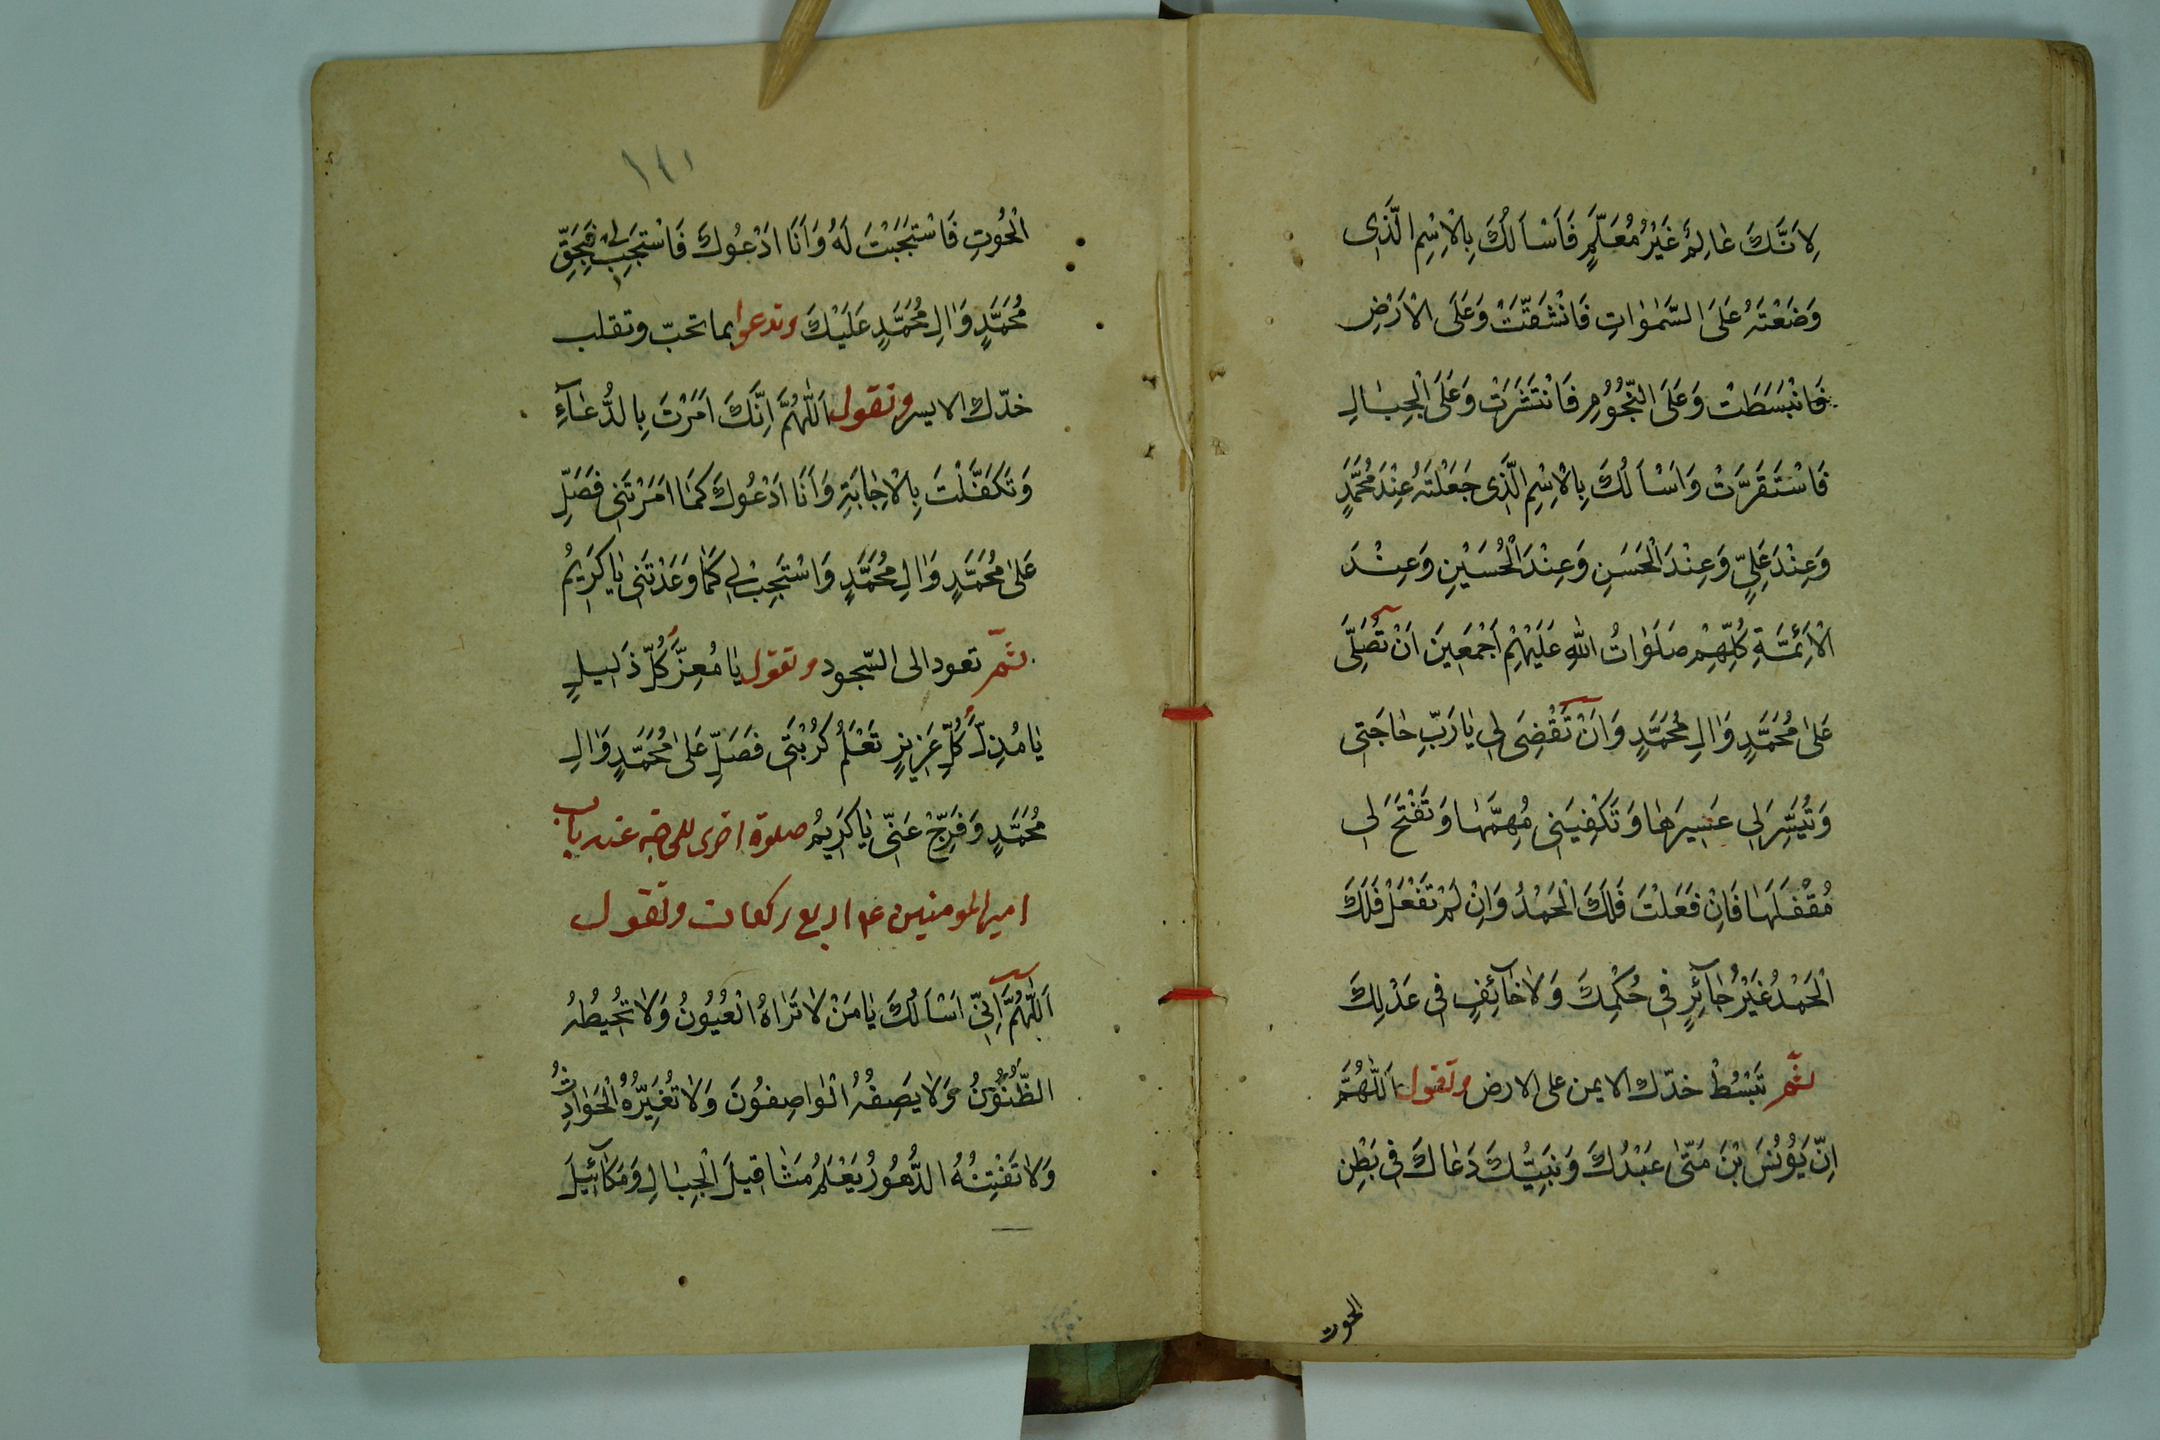 لِاَنَّكَ عٰالِمٌ غَيْرُ مُعَلَّمٍ فَاَسْاَلُكَ بِالْاِسْمِ الَّذٖى
وَضَعْتَهُ عَلَى السَّمٰوٰاتِ فَانْشَقَّتْ وَعَلَى الْاَرْضِ
فَانْبَسَطَتْ وَعَلَى النُّجُوُمِ فَانْتَثَرَتْ وَعَلَى الْجِبٰالِ
فَاسْتَقَرَّتْ وَاَسْاَلُكَ بِالْاِسْمِ الَّذٖى جَعَلْتَهُ عِنْدَ مُحَمَّدٍ
وَعِنْدَ عَلِيٍّ وَعِنْدَ الْحَسَنِ وَعِنْدَ الْحُسَيْنِ وَعِنْدَ
الْاَئِمَّةِ كُلِّهِمْ صَلَوٰاتُ اللّٰهِ عَلَيْهِمْ اَجْمَعٖينَ اَنْ تُصَلِّىَ
عَلىٰ مُحَمَّدٍ وَاٰلِ مُحَمَّدٍ وَاَنْ تَقْضِىَ لٖى يٰا رَبِّ حٰاجَتٖى
وَتُيَسِّرَ لٖى عَسٖيرَهٰا وَتَكْفِيَنٖى مُهِمَّهٰا وَتَفْتَحَ لٖى
مُقْفَلَهٰا فَاِنْ فَعَلْتَ فَلَكَ الْحَمْدُ وَاِنْ لَمْ تَفْعَلْ فَلَكَ
الْحَمْدُ غَيْرُ جٰآئِرٍ فٖى حُكْمِكَ وَلٰا خٰآئِفٍ فٖى عَدْلِكَ
ثمّ تَبْسُطْ خدّك الايمن على الارض وتقول اَللّٰهُمَّ
اِنَّ يُوُنُسَ بْنَ مَتّىٰ عَبْدُكَ وَنَبِيُّكَ دَعٰاكَ فٖى بَطْنِ
الحوت
١٤١
الْحُوتِ فَاسْتَجَبْتَ لَهُ وَاَنَا اَدْعُوكَ فَاسْتَجِبْ لٖى بِحَقِّ
مُحَمَّدٍ وَاٰلِ مُحَمَّدٍ عَلَيْكَ وتدعوا بما تحبّ وتقلب
خدّك الايسر وتقول اَللّٰهُمَّ اِنَّكَ اَمَرْتَ بِالدُّعٰآءِ
وَتَكَفَّلْتَ بِالْاِجٰابَةِ وَاَنَا اَدْعُوكَ كَمٰا اَمَرْتَنٖى فَصَلِّ
عَلىٰ مُحَمَّدٍ وَاٰلِ مُحَمَّدٍ وَاسْتَجِبْ لٖى كَمٰا وَعَدْتَنٖى يٰا كَرٖيمُ
ثمّ تعود الى السّجود وتقول يٰا مُعِزَّ كُلِّ ذَلٖيلٍ
يٰا مُذِلَّ كُلِّ عَزٖيزٍ تَعْلَمُ كُرْبَتٖى فَصَلِّ عَلىٰ مُحَمَّدٍ وَاٰلِ
مُحَمَّدٍ وَفَرِّجْ عَنّٖى يٰا كَرٖيمُ صلوة اخرى للحاجه عند باب
امير المومنين ع اربع ركعات وتقول
اَللّٰهُمَّ اِنّٖى اَسْاَلُكَ يٰا مَنْ لٰا تَرٰاهُ الْعُيُونُ وَلٰا تُحٖيطُهُ
الظُّنُوُنُ وَلٰا يَصِفُهُ الْوٰاصِفُونَ وَلٰا تُغَيِّرُهُ الْحَوٰادِثُ
وَلٰا تَفْنِنُهُ الدُّهُورُ يَعْلَمُ مَثٰاقٖيلَ الْجِبٰالِ وَمَكٰآئٖيلَ